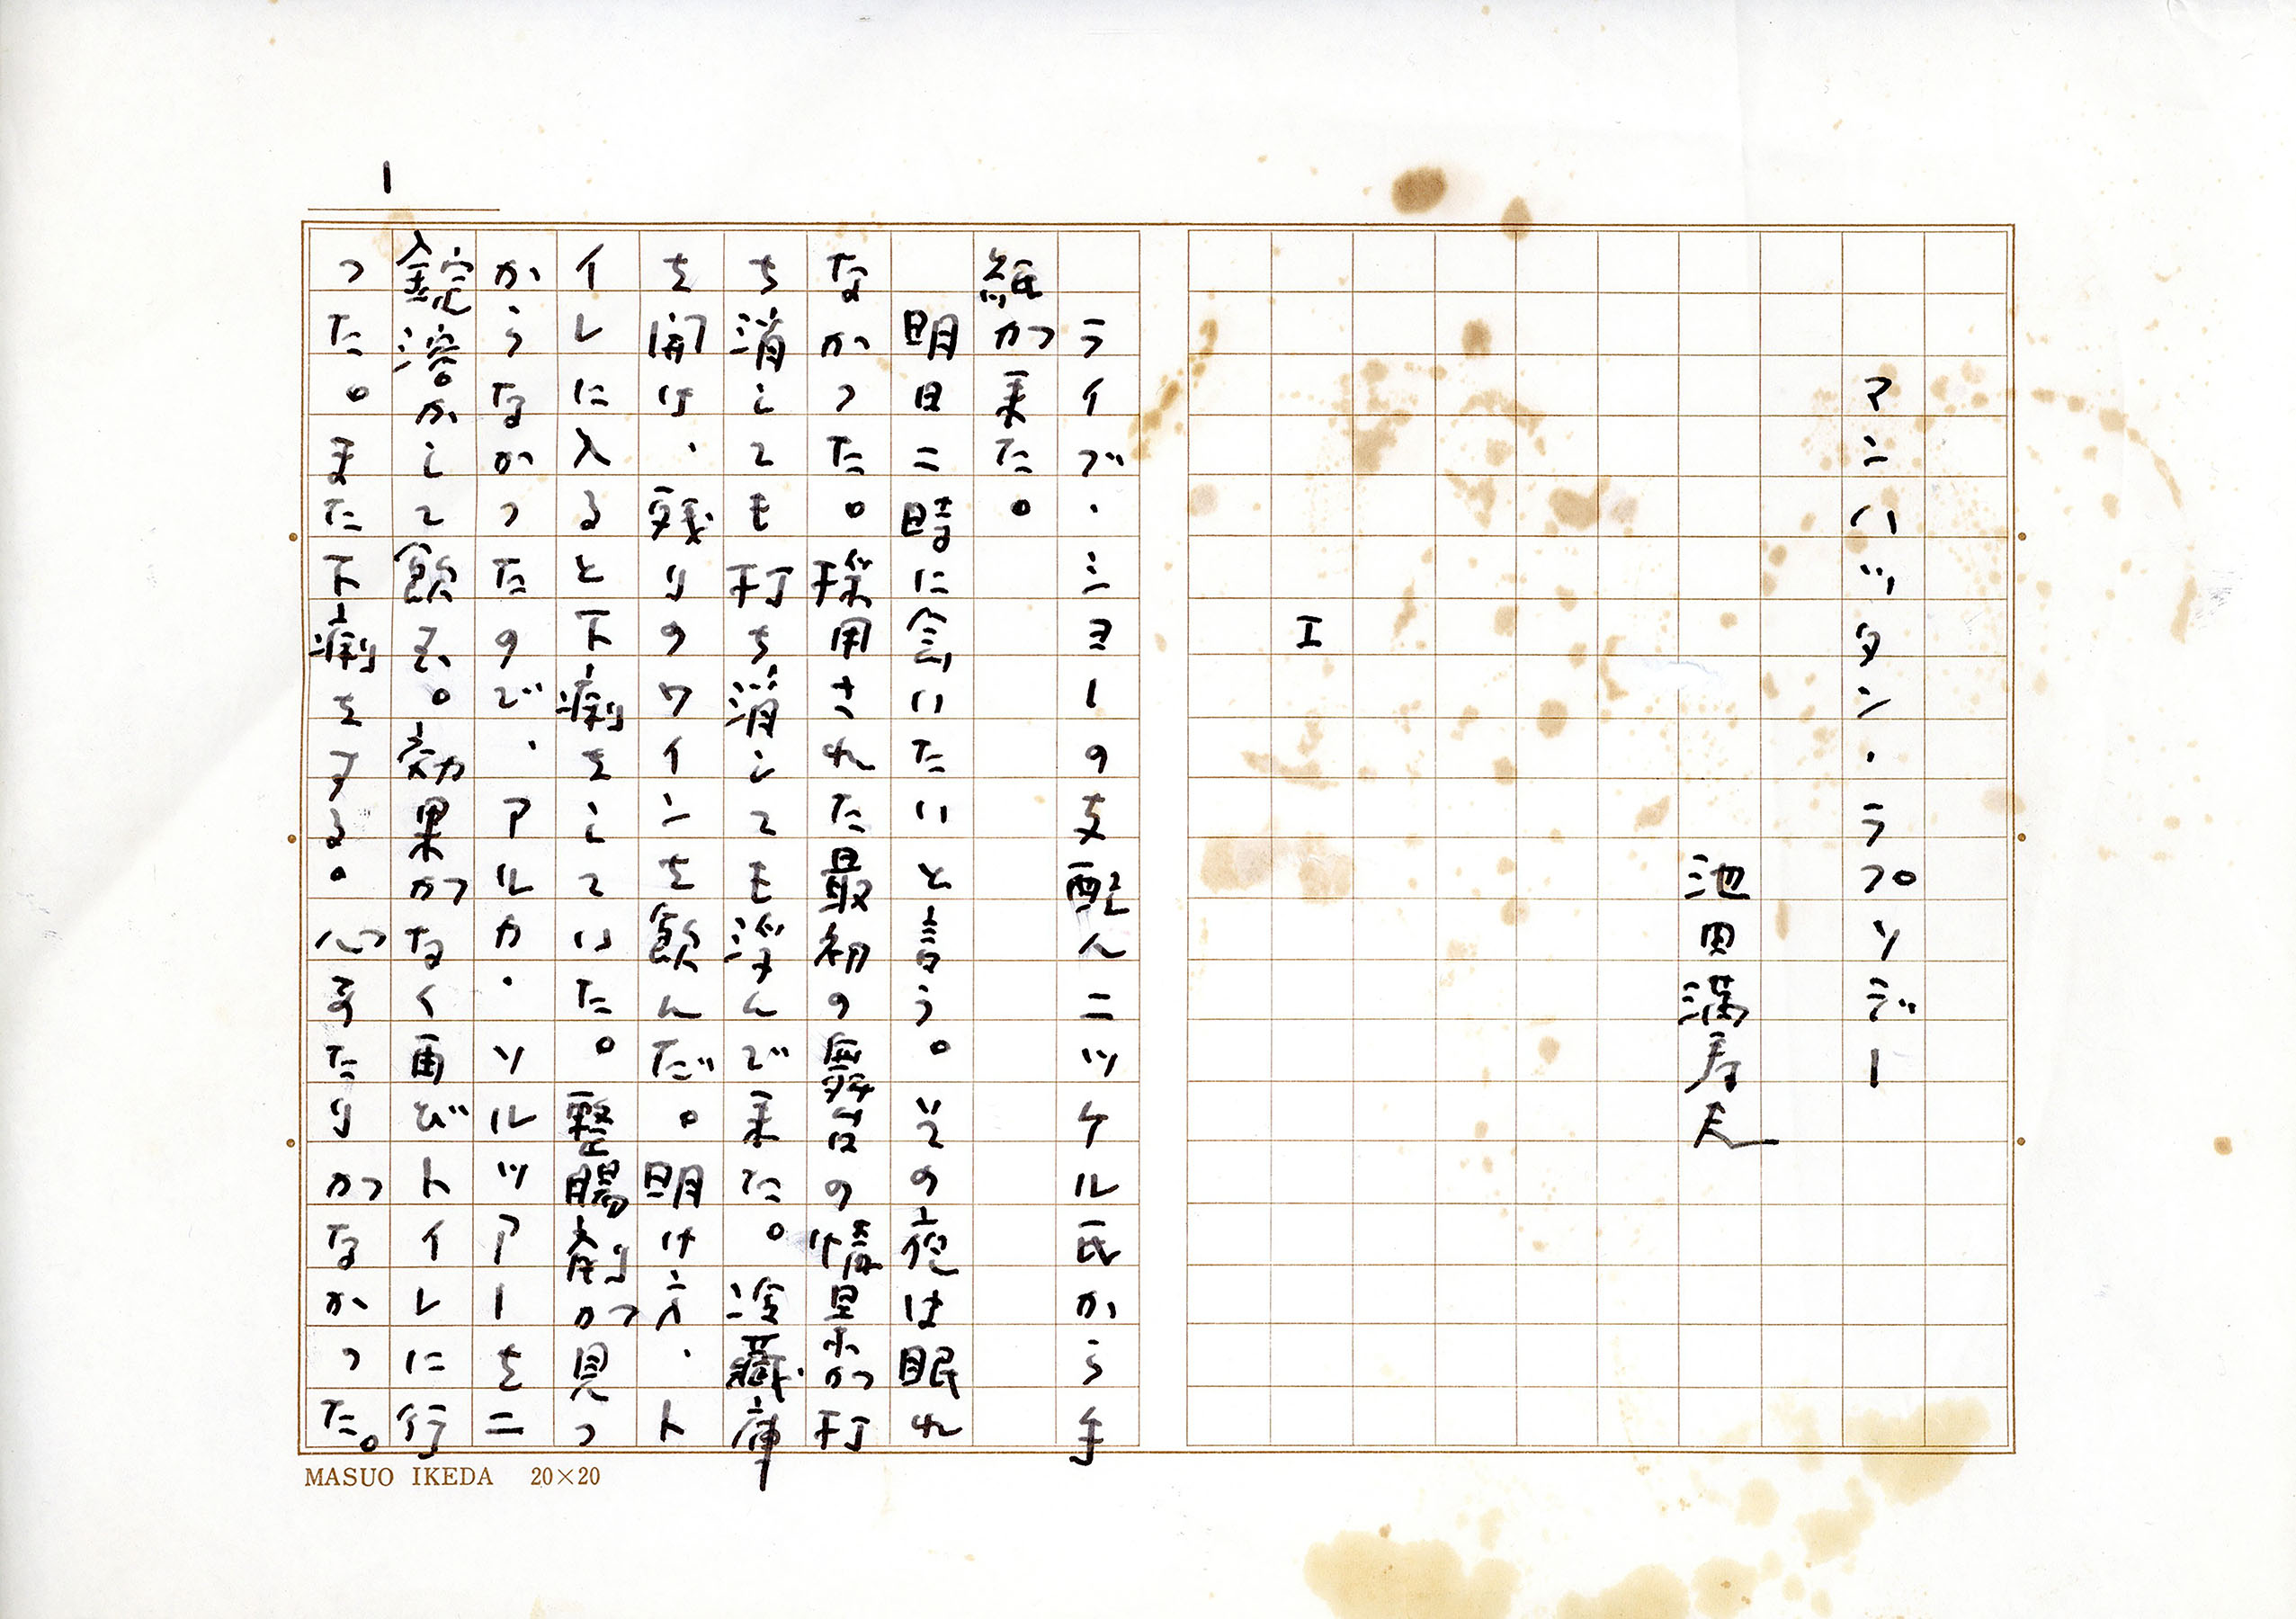 マンハッタン・ラプソディー
池田満寿夫
I
ライブ・ショーの支配人ニッケル氏から手
紙が来た。
明日二時に会いたいと言う。その夜は眠れ
なかった。採用された最初の舞台の情景が打
ち消しても打ち消しても浮んで来た。冷蔵庫
を開け、残りのワインを飲んだ。明け方、ト
イレに入ると下痢をしていた。整腸剤が見つ
からなかったので、アルカ・ソルツアーを二
錠溶かして飲む。効果がなく再びトイレに行
った。また下痢をする。心当たりがなかった。
1
MASUO IKEDA 20×20